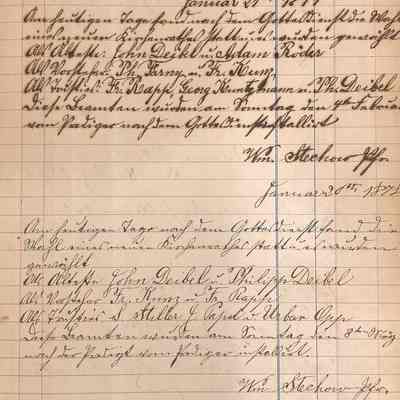 Januar 21 18
Am heutigen Tage fand nach dem Gottesdienst die Wahl
eines neuen Kirchenrathes statt u. es wurden gewählt
Als Älteste: John Deibl u. Adam Röder
Als Vorsteher: Ph. Farny u. Fr. Kunz,
Als Trusties: Fr. Kapp, Georg u. Ph. Deibel
Diese Beamten wurden am Sonntag den 4ten Februar
vom Prediger nach dem Gottesdienst installirt
Wm. Stechow Pfr.
Januar 187
Am heutigen Tage nach dem Gottesdienst fand die
Wahl eines neuen Kirchenrathes statt u. es wurden
gewählt
Als Älteste John Deibel u. Philipp Deibel
Als Vorsteher Fr. Kunz u. Fr. Kapp
Als Trusties
Diese Beamten wurden am Sonntag den
nach der Predigt vom Prediger installirt.
Wm. Stechow Pfr.